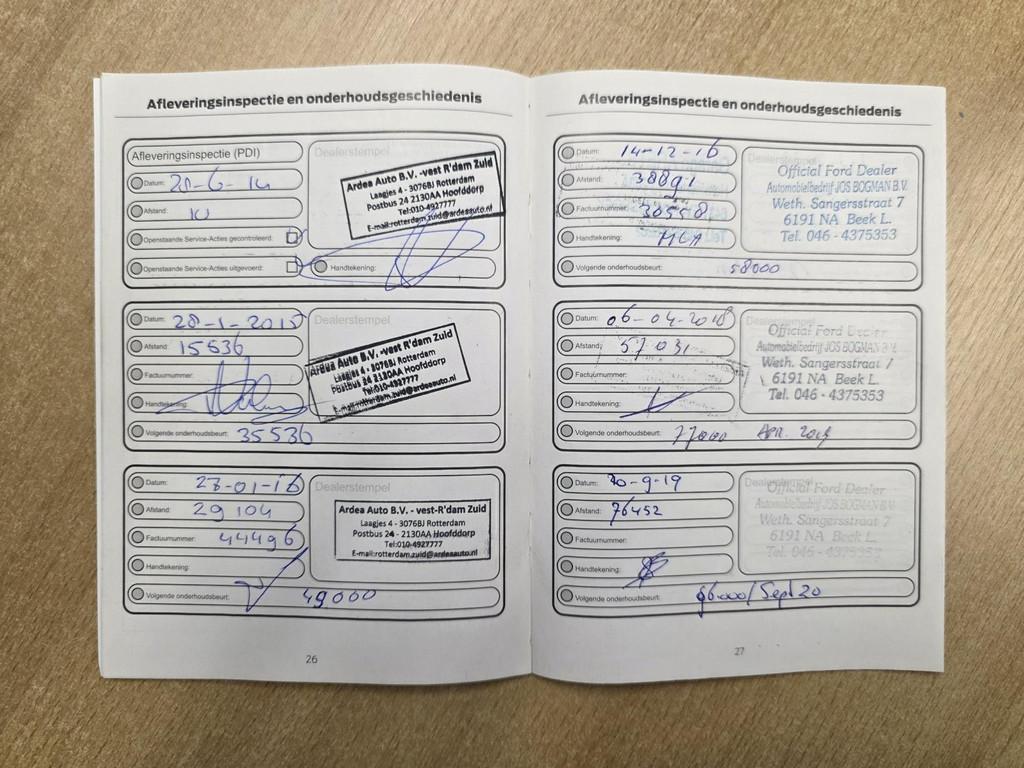 Afleveringsinspectie en onderhoudsgeschiedenis
Afleveringsinspectie (PDI)
Dealerstempel
Datum: 20-6-14
Afstand: 10
Openstaande Service-Acties gecontroleerd:
Openstaande Service-Acties uitgevoerd:
Handtekening:
Ardea Auto B.V. -vest R'dam Zuid
Laagjes 4 - 3076BJ Rotterdam
Postbus 24 2130AA Hoofddorp
Tel:010-4927777
E-mail:rotterdam.zuid@ardeaauto.nl
Datum: 28-1-2015
Afstand: 15536
Factuurnummer:
Handtekening:
Volgende onderhoudsbeurt: 35536
Dealerstempel
Ardea Auto B.V. -vest R'dam Zuid
Laagjes 4 - 3076BJ Rotterdam
Postbus 24 2130AA Hoofddorp
Tel:010-4927777
E-mail:rotterdam.zuid@ardeaauto.nl
Datum: 27-01-16
Afstand: 29104
Factuurnummer: 44496
Handtekening:
Volgende onderhoudsbeurt: 49000
Dealerstempel
Ardea Auto B.V. - vest-R'dam Zuid
Laagjes 4 - 3076BJ Rotterdam
Postbus 24 - 2130AA Hoofddorp
Tel:010-4927777
E-mail:rotterdam.zuid@ardeaauto.nl
26
Afleveringsinspectie en onderhoudsgeschiedenis
Datum: 14-12-16
Afstand: 38891
Factuurnummer: 30558
Handtekening:
Volgende onderhoudsbeurt: 58000
Official Ford Dealer
Automobielbedrijf JOS BOGMAN B.V.
Weth. Sangersstraat 7
6191 NA Beek L.
Tel. 046 - 4375353
Datum: 06-04-2018
Afstand: 57031
Factuurnummer:
Handtekening:
Volgende onderhoudsbeurt: 77000 Apr. 2019
Official Ford Dealer
Automobielbedrijf JOS BOGMAN B.V.
Weth. Sangersstraat 7
6191 NA Beek L.
Tel. 046 - 4375353
Datum: 20-9-19
Afstand: 76452
Factuurnummer:
Handtekening:
Volgende onderhoudsbeurt: 96000/Sept 20
Dealerstempel
Official Ford Dealer
Automobielbedrijf JOS BOGMAN B.V.
Weth. Sangersstraat 7
6191 NA Beek L.
Tel. 046 - 4375353
27